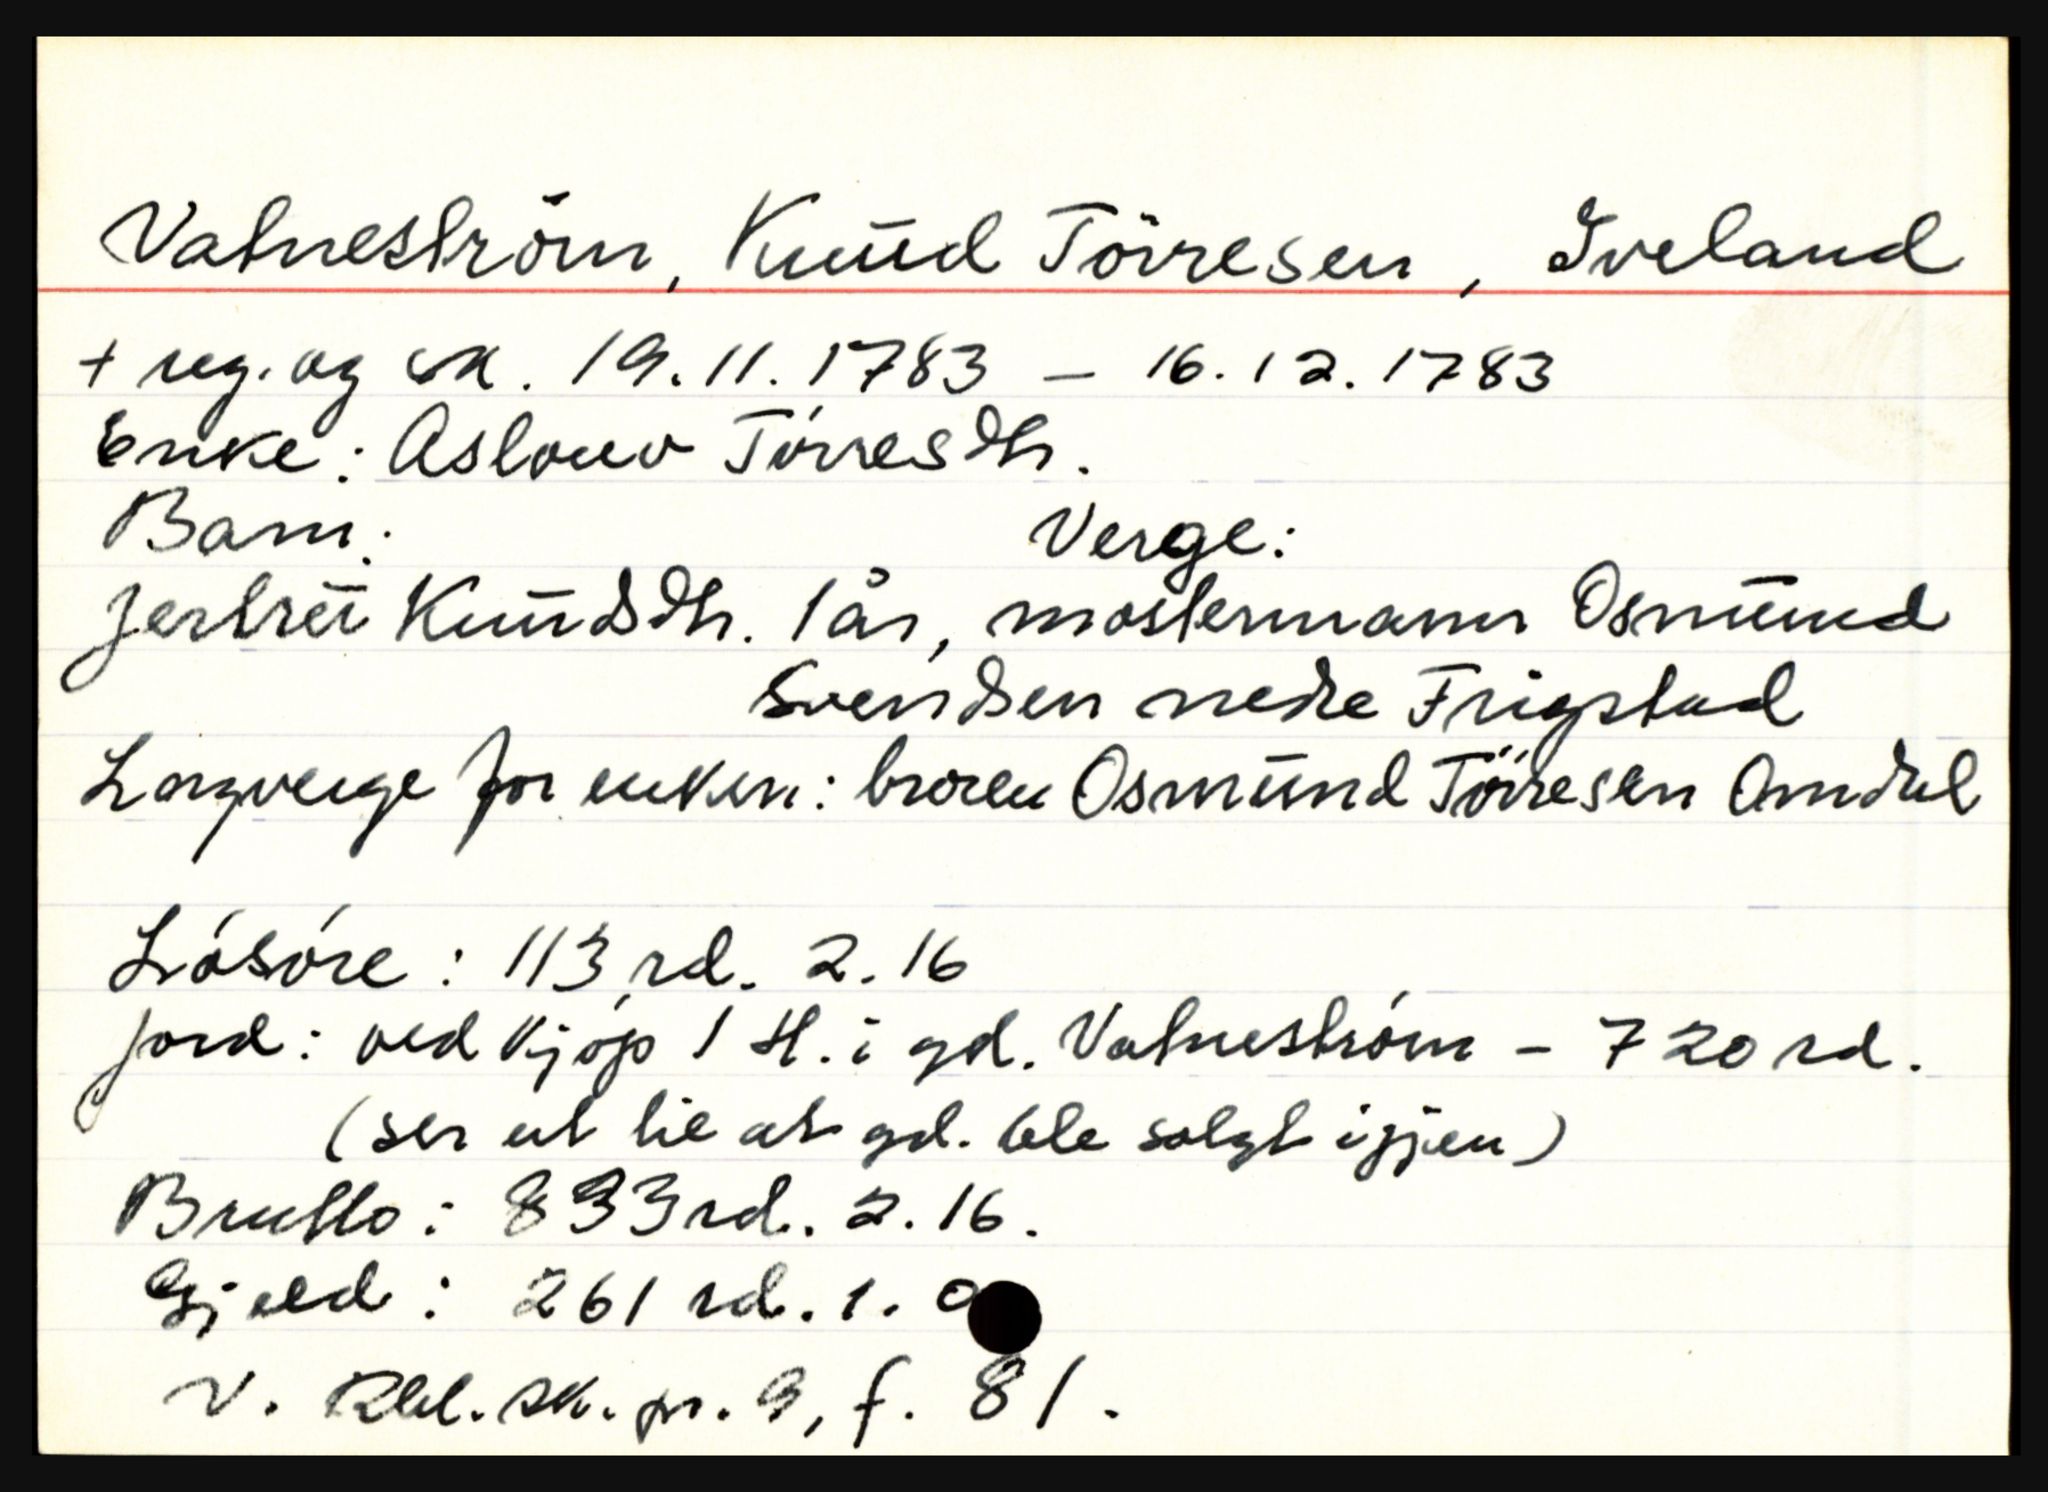 Vatneström, Knud Törresen, Iveland
+ reg. og sk. 19.11.1783 – 16.12.1783
Enke: Aslouv Törresdtr.
Barn: Verge:
Jertrü Knudsdtr. 1 år, mostermann Osmund
Svendsen nedre Frigstad
Laugverge for enken: broren Osmund Törresen Omdal
Lösöre: 113 rd. 2.16
Jord: ved kjöp 1 H. i gd. Vatneström – 720 rd.
(ser ut til at gd. ble solgt igjen)
Brutto: 833 rd. 2.16.
Gjeld: 261 rd. 1. 0
V. Rbl. sk. pr. 9, f. 81.